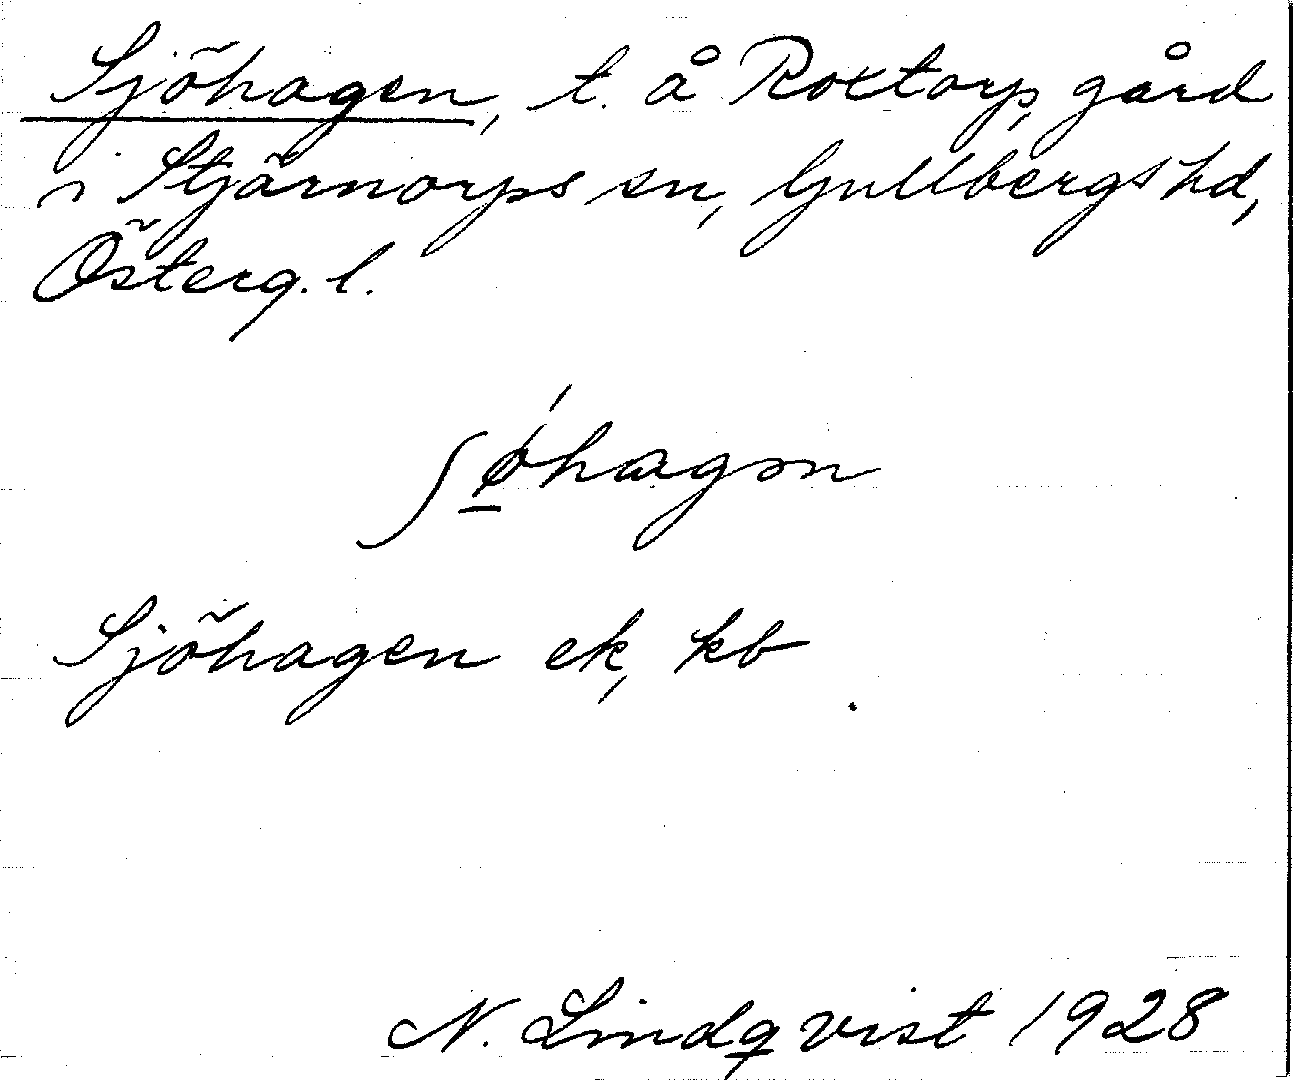 Sjöhagen, t. å Roxtorp, gård
i Stjärnorps sn, Gullbergs hd,
Österg. l.
ʃǿ̱hagən
Sjöhagen ek, kb
N. Lindqvist 1928